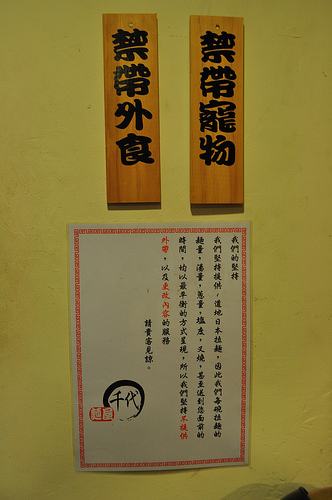 禁帶寵物
禁帶外食
我們的堅持
我們堅持提供,道地日本拉麵,因此我們每碗拉麵的
麵量,湯量,蔥量,鹽度,叉燒,甚至送到您面前的
時間,均以最平衡的方式呈現,所以我們堅持不提供
外帶,以及更改內容的服務
請貴客見諒。
千代
麵屋